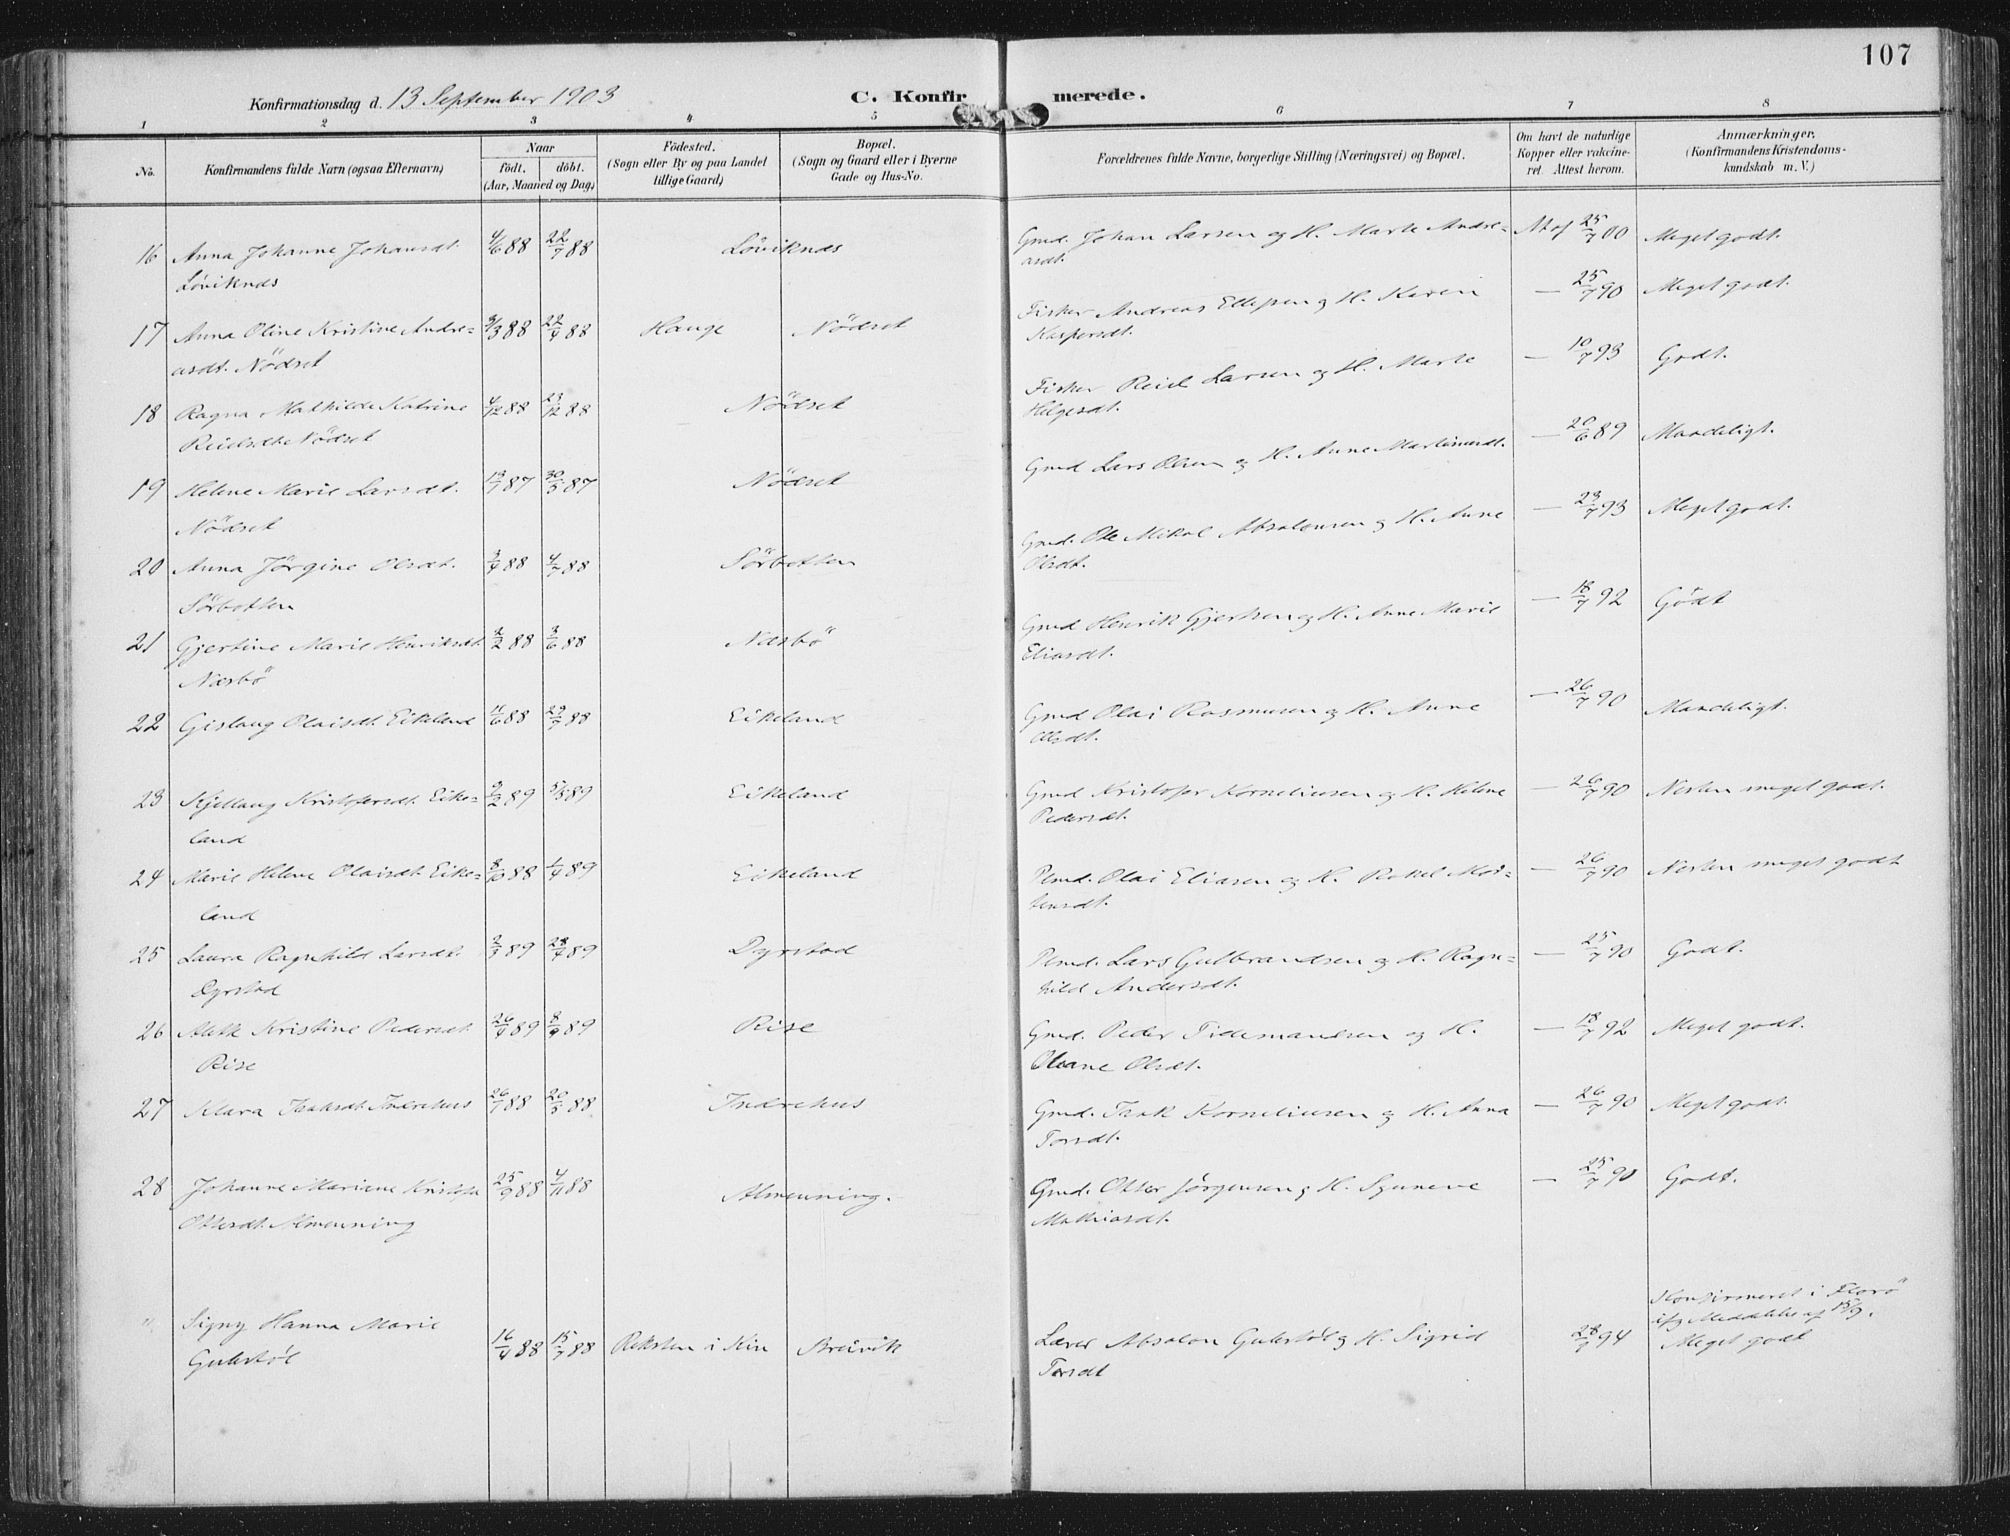 107
Konfirmationsdag d. 13 September 1903
C. Konfirmerede.
1 2 3 4 5 6 7 8
No.
Konfirmandens fulde Navn (ogsaa Efternavn)
Naar
födt. döbt.
(Aar, Maaned og Dag)
Födested.
(Sogn eller By og paa Landet
tillige Gaard)
Bopæl.
(Sogn og Gaard eller i Byerne
Gade og Hus-No.
Forældrenes fulde Navne, borgerlige Stilling (Næringsvei) og Bopæl.
Om havt de naturlige
Kopper eller vakcine-
ret. Attest herom.
Anmærkninger.
(Konfirmandens Kristendoms-
kundskab m. V.)
16 Anna Johanne Johansdt. 4/6 88 22/7 88 Löviknæs Gmd. Johan Larsen og H. Marte Andre- At af 25/7 00 Meget godt.
Löviknæs asdt.
17 Anna Oline Kristine Andre- 88 22/4 88 Hauge Nödset Fisker Andreas Ellefsen og H. Karen — 25/7 90 Meget godt.
asdt. Nödset Kaspersdt.
18 Ragna Mathilde Katrine 4/12 88 23/12 88 Nödset Fisker Reiel Larsen og H. Marte — 10/7 93 Godt.
Reielsdt. Nödset Helgesdt.
19 Helene Marie Larsdt. 87 30/3 87 Nödset Gmd Lars Olsen og H. Anne Martinusdt. — 20/6 89 Maadeligt.
Nödset
20 Anna Jörgine Olsdt. 3/4 88 4/7 88 Sörbotten Gmd. Ole Mikal Absalonsen og H. Anne — 23/7 93 Meget godt.
Sörbotten Olsdt.
21 Gjertine Marie Henriksdt. 2/2 88 3/6 88 Næsbö Gmd Henrik Gjertsen og H. Anne Marie — 18/7 92 Godt
Næsbö Eliasdt.
22 Gislaug Olaisdt. Eikeland 11/6 88 29/7 88 Eikeland Gmd Olai Rasmusen og H. Anne — 26/7 90 Maadeligt.
Olsdt.
23 Kjellaug Kristofersdt. Eike- 2/2 89 5/5 89 Eikeland Gmd Kristofer Korneliusen og H. Helene — 26/7 90 Nesten meget godt.
land Pedersdt.
24 Marie Helene Olaisdt. Eike- 8/10 88 1/4 89 Eikeland Plmd. Olai Eliasen og H. Rakel Mor- — 26/7 90 Nesten meget godt
land tensdt.
25 Laura Ragnhild Larsdt. 2/3 89 28/4 89 Dyrstad Plmd. Lars Gulbrandsen og H. Ragn- — 25/7 90 Godt.
Dyrstad hild Andersdt.
26 Alette Kristine Pedersdt. 26/4 89 8/9 89 Rise Gmd. Peder Tidemandsen og H. — 18/7 92 Meget godt.
Rise Oleane Olsdt.
27 Klara Isaksdt. Indrehus 26/1 88 20/5 88 Indrehus Gmd. Isak Korneliusen og H. Anna — 26/7 90 Meget godt.
Torsdt.
28 Johanne Mariane Kristofa 25/9 88 4/11 88 Almenning. Gmd. Otter Jörgensen og H. Syneve — 25/7 90 Godt.
Ottersdt. Almenning Mathiasdt.
Konfirmeret i Florö
ifg Meddelelse af 15/9.
" Signy Hanna Marie 16/4 88 15/7 88 Reksten i Kin Breivik Lærer Absalon Gulestöl og H. Sigrid 28/7 94 Meget godt
Gulestöl Torsdt